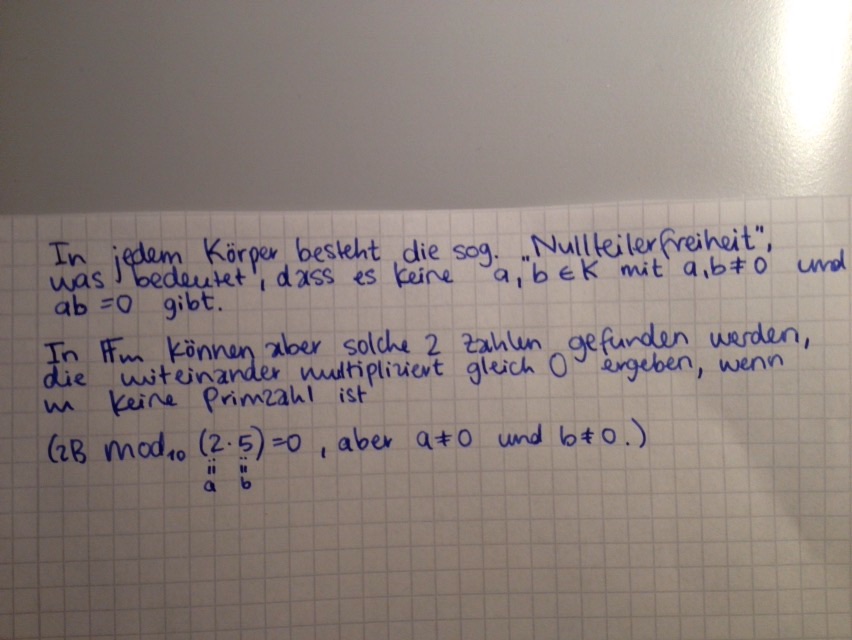 In jedem Körper besteht die sog. „Nullteilerfreiheit",
was bedeutet, dass es keine a, b ∈ K mit a,b ≠ 0 und
ab = 0 gibt.
In 𝔽m können aber solche 2 Zahlen gefunden werden,
die miteinander multipliziert gleich 0 ergeben, wenn
m keine Primzahl ist
(zB mod₁₀ (2·5) = 0, aber a ≠ 0 und b ≠ 0.)
=: =:
a b